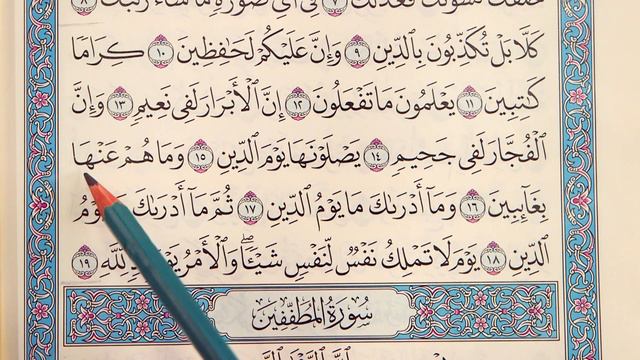 خلقك فسوىك فعدلك ٧ في أي صورة ما شاء ركبك ٨
كَلَّا بَلْ تُكَذِّبُونَ بِٱلدِّينِ ٩ وَإِنَّ عَلَيْكُمْ لَحَٰفِظِينَ ١٠ كِرَامًا
كَٰتِبِينَ ١١ يَعْلَمُونَ مَا تَفْعَلُونَ ١٢ إِنَّ ٱلْأَبْرَارَ لَفِى نَعِيمٍ ١٣ وَإِنَّ
ٱلْفُجَّارَ لَفِى جَحِيمٍ ١٤ يَصْلَوْنَهَا يَوْمَ ٱلدِّينِ ١٥ وَمَا هُمْ عَنْهَا
بِغَآئِبِينَ ١٦ وَمَآ أَدْرَىٰكَ مَا يَوْمُ ٱلدِّينِ ١٧ ثُمَّ مَآ أَدْرَىٰكَ يَوْمُ
ٱلدِّينِ ١٨ يَوْمَ لَا تَمْلِكُ نَفْسٌ لِّنَفْسٍ شَيْـًٔا ۖ وَٱلْأَمْرُ لِّلَّهِ ١٩
سُورَةُ ٱلْمُطَفِّفِينَ